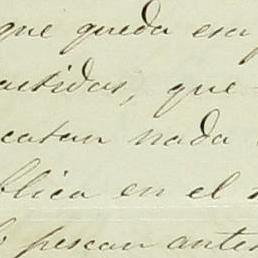 que queda esa
partidas, que
catan nada
blica en el
pescan ante